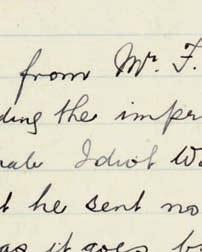 from Mr. F.
ding the impe
nale Idiot Wa
t he sent no
as it goes b